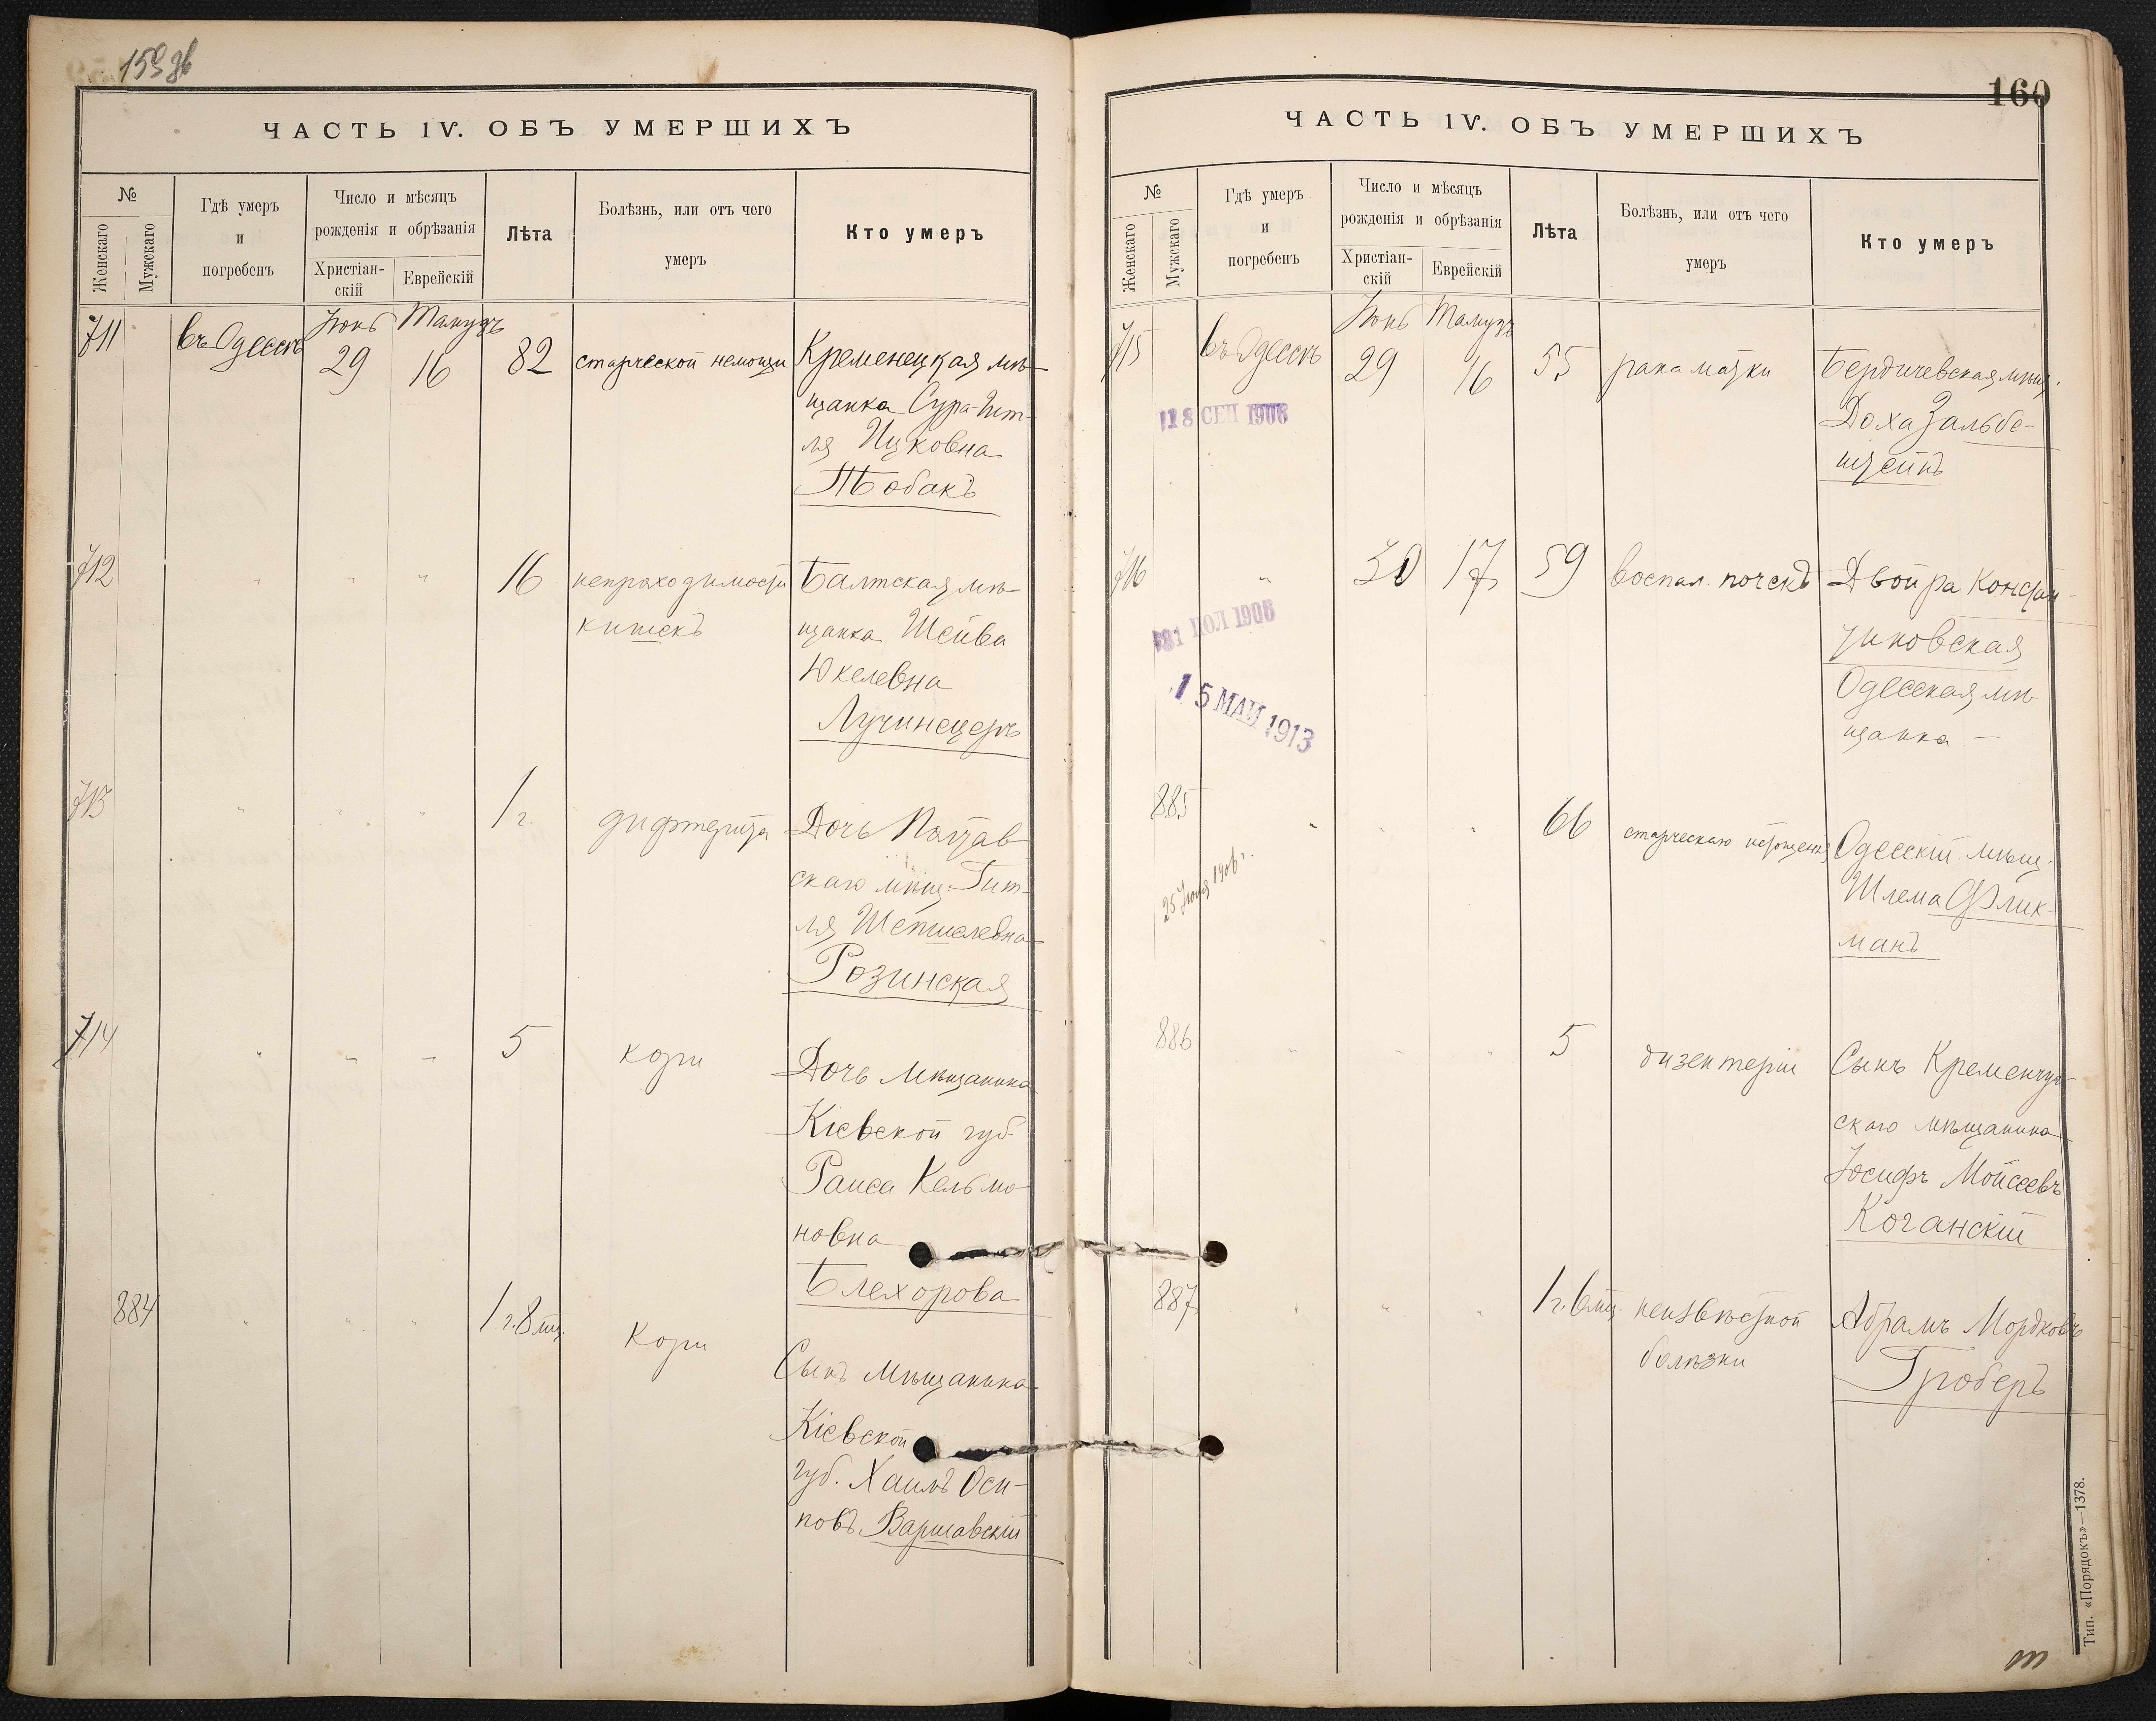 159 об
ЧАСТЬ IV. ОБЪ УМЕРШИХЪ
№
Женскаго
Мужскаго
Гдѣ умеръ
и
погребенъ
Число и мѣсяцъ
рожденія и обрѣзанія
Христіан-
скій
Еврейскій
Лѣта
Болѣзнь, или отъ чего
умеръ
Кто умеръ
Іюнь Тамузъ
711 въ Одессѣ 29 16 82 старческой немощи Кременецкая мѣ-
щанка Сура-Гит-
ля Ицковна
Тобакъ
712 " " " 16 непроходимости Балтская мѣ-
кишекъ щанка Шейва
Юкелевна
Лучинецеръ
713 " " " 1 г. дифтерита Дочь Полтав
скаго мѣщ. Гит-
ля Шепшелевна
Розинская
714 " " " 5 кори Дочь мѣщанина
Кіевской губ.
Раиса Кельма-
новна
Блехорова
884 " " " 1 г. 8 мц. кори
Сынъ мѣщанина
Кіевской
губ. Хаимъ Оси-
повъ Варшавскій
160
ЧАСТЬ IV. ОБЪ УМЕРШИХЪ
№
Женскаго
Мужскаго
Гдѣ умеръ
и
погребенъ
Число и мѣсяцъ
рожденія и обрѣзанія
Христіан-
скій
Еврейскій
Лѣта
Болѣзнь, или отъ чего
умеръ
Кто умеръ
Іюнь Тамузъ
715 въ Одессѣ 29 16 55 рака матки Бердичевская мѣщ.
18 СЕП 1906
Доха Зальбе-
штейнъ
716 " 30 17 59 воспал. почекъ Двойра Констан-
31 ІЮЛ 1906
тиновская
15 МАЙ 1913
Одесская мѣ-
щанка
885 " " " 66 старческаго истощенія Одесскій мѣщ.
25 Іюля 1906 г.
Шлема Флик-
манъ
886 " " " 5 дизентеріи Сынъ Кременчуг-
скаго мѣщанина
Іосифъ Мойсеевъ
Коганскій
887 " " " 1 г. 6 мц. неизвѣстной Абрамъ Мордковъ
болѣзни Гроберъ
Тип. «Порядокъ»—1378.